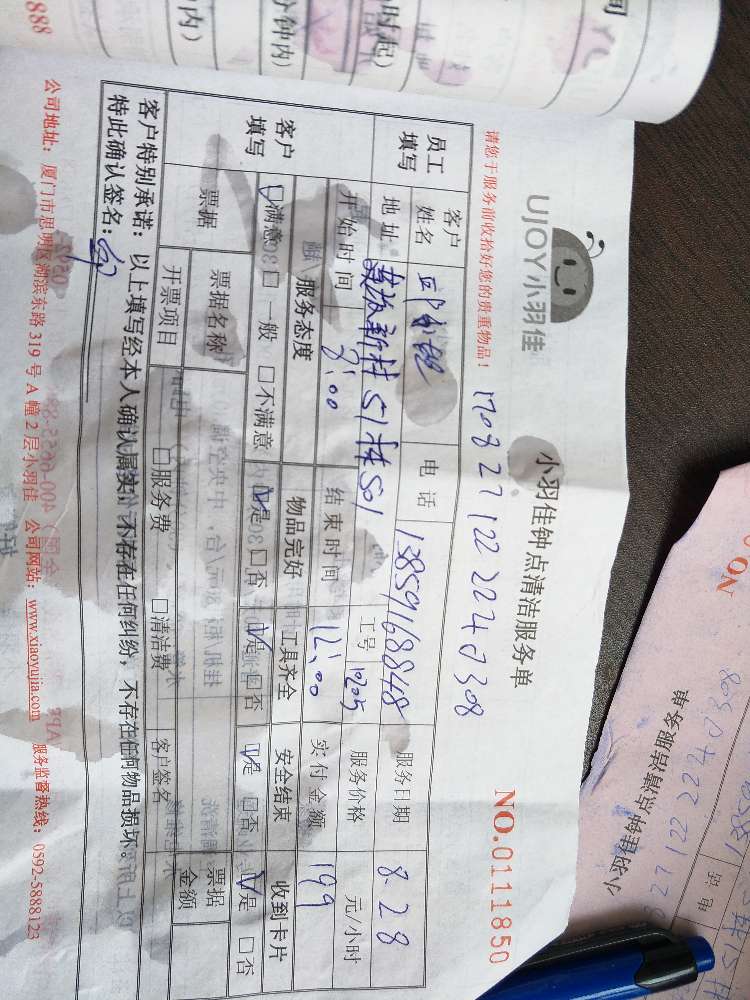 UJOY小羽佳
小羽佳钟点清洁服务单
NO.0111850
请您于服务前收拾好您的贵重物品！
170827122 22240308
员工填写
客户姓名
电话 13859168848
服务日期 8.28
地址 新村51栋501
工号 10205
服务价格 元/小时
开始时间 8:00
结束时间 12:00
实付金额 199
客户填写
服务态度 物品完好 工具齐全 安全结束 收到卡片
☑满意 □一般 □不满意 ☑是 □否 ☑是 □否 ☑是 □否 ☑是 □否
票据
票据名称 □服务费 □清洁费
票据金额
开票项目
客户签名
客户特别承诺：以上填写经本人确认属实，不存在任何纠纷，不存在任何物品损坏。
特此确认签名：
公司地址：厦门市思明区湖滨东路319号A幢2层小羽佳 公司网站：www.xiaoyujia.com 服务监督热线：0592-5888123
888
小羽佳钟点清洁服务单
NO